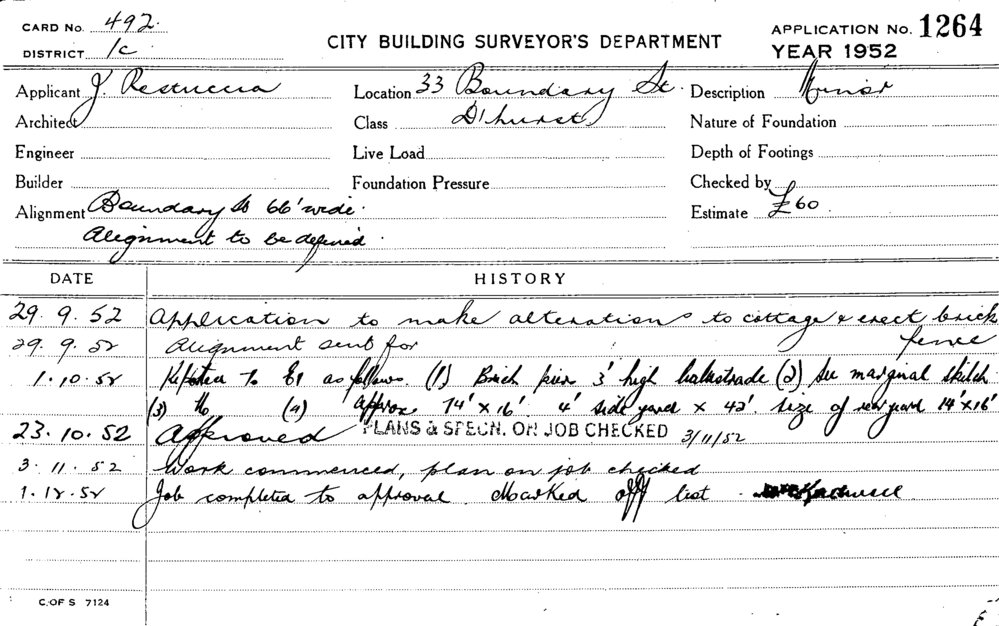 CARD No. 492.
DISTRICT 1c
CITY BUILDING SURVEYOR'S DEPARTMENT
APPLICATION No. 1264
YEAR 1952
Applicant J. Restuccia Location 33 Boundary St. Description Minor
Architect Class D'hurst Nature of Foundation
Engineer Live Load Depth of Footings
Builder Foundation Pressure Checked by
Alignment Boundary St 66' wide. Estimate £60
Alignment to be defined.
DATE HISTORY
29. 9. 52 Application to make alterations to cottage & erect brick
fence
29. 9. 52 Alignment sent for
1. 10. 52 Reported to as follows. (1) Brick piers 3' high balustrade (2) See marginal sketch
(3) (4) Approx 14' x 16'. 4' side yard x 42'. size of rear yard 14' x 16'
23. 10. 52 Approved PLANS & SPECN. ON JOB CHECKED 3/11/52
3. 11. 52 Work commenced, plan on job checked
1. 12. 52 Job completed to approval. Marked off list
C.OF S 7124